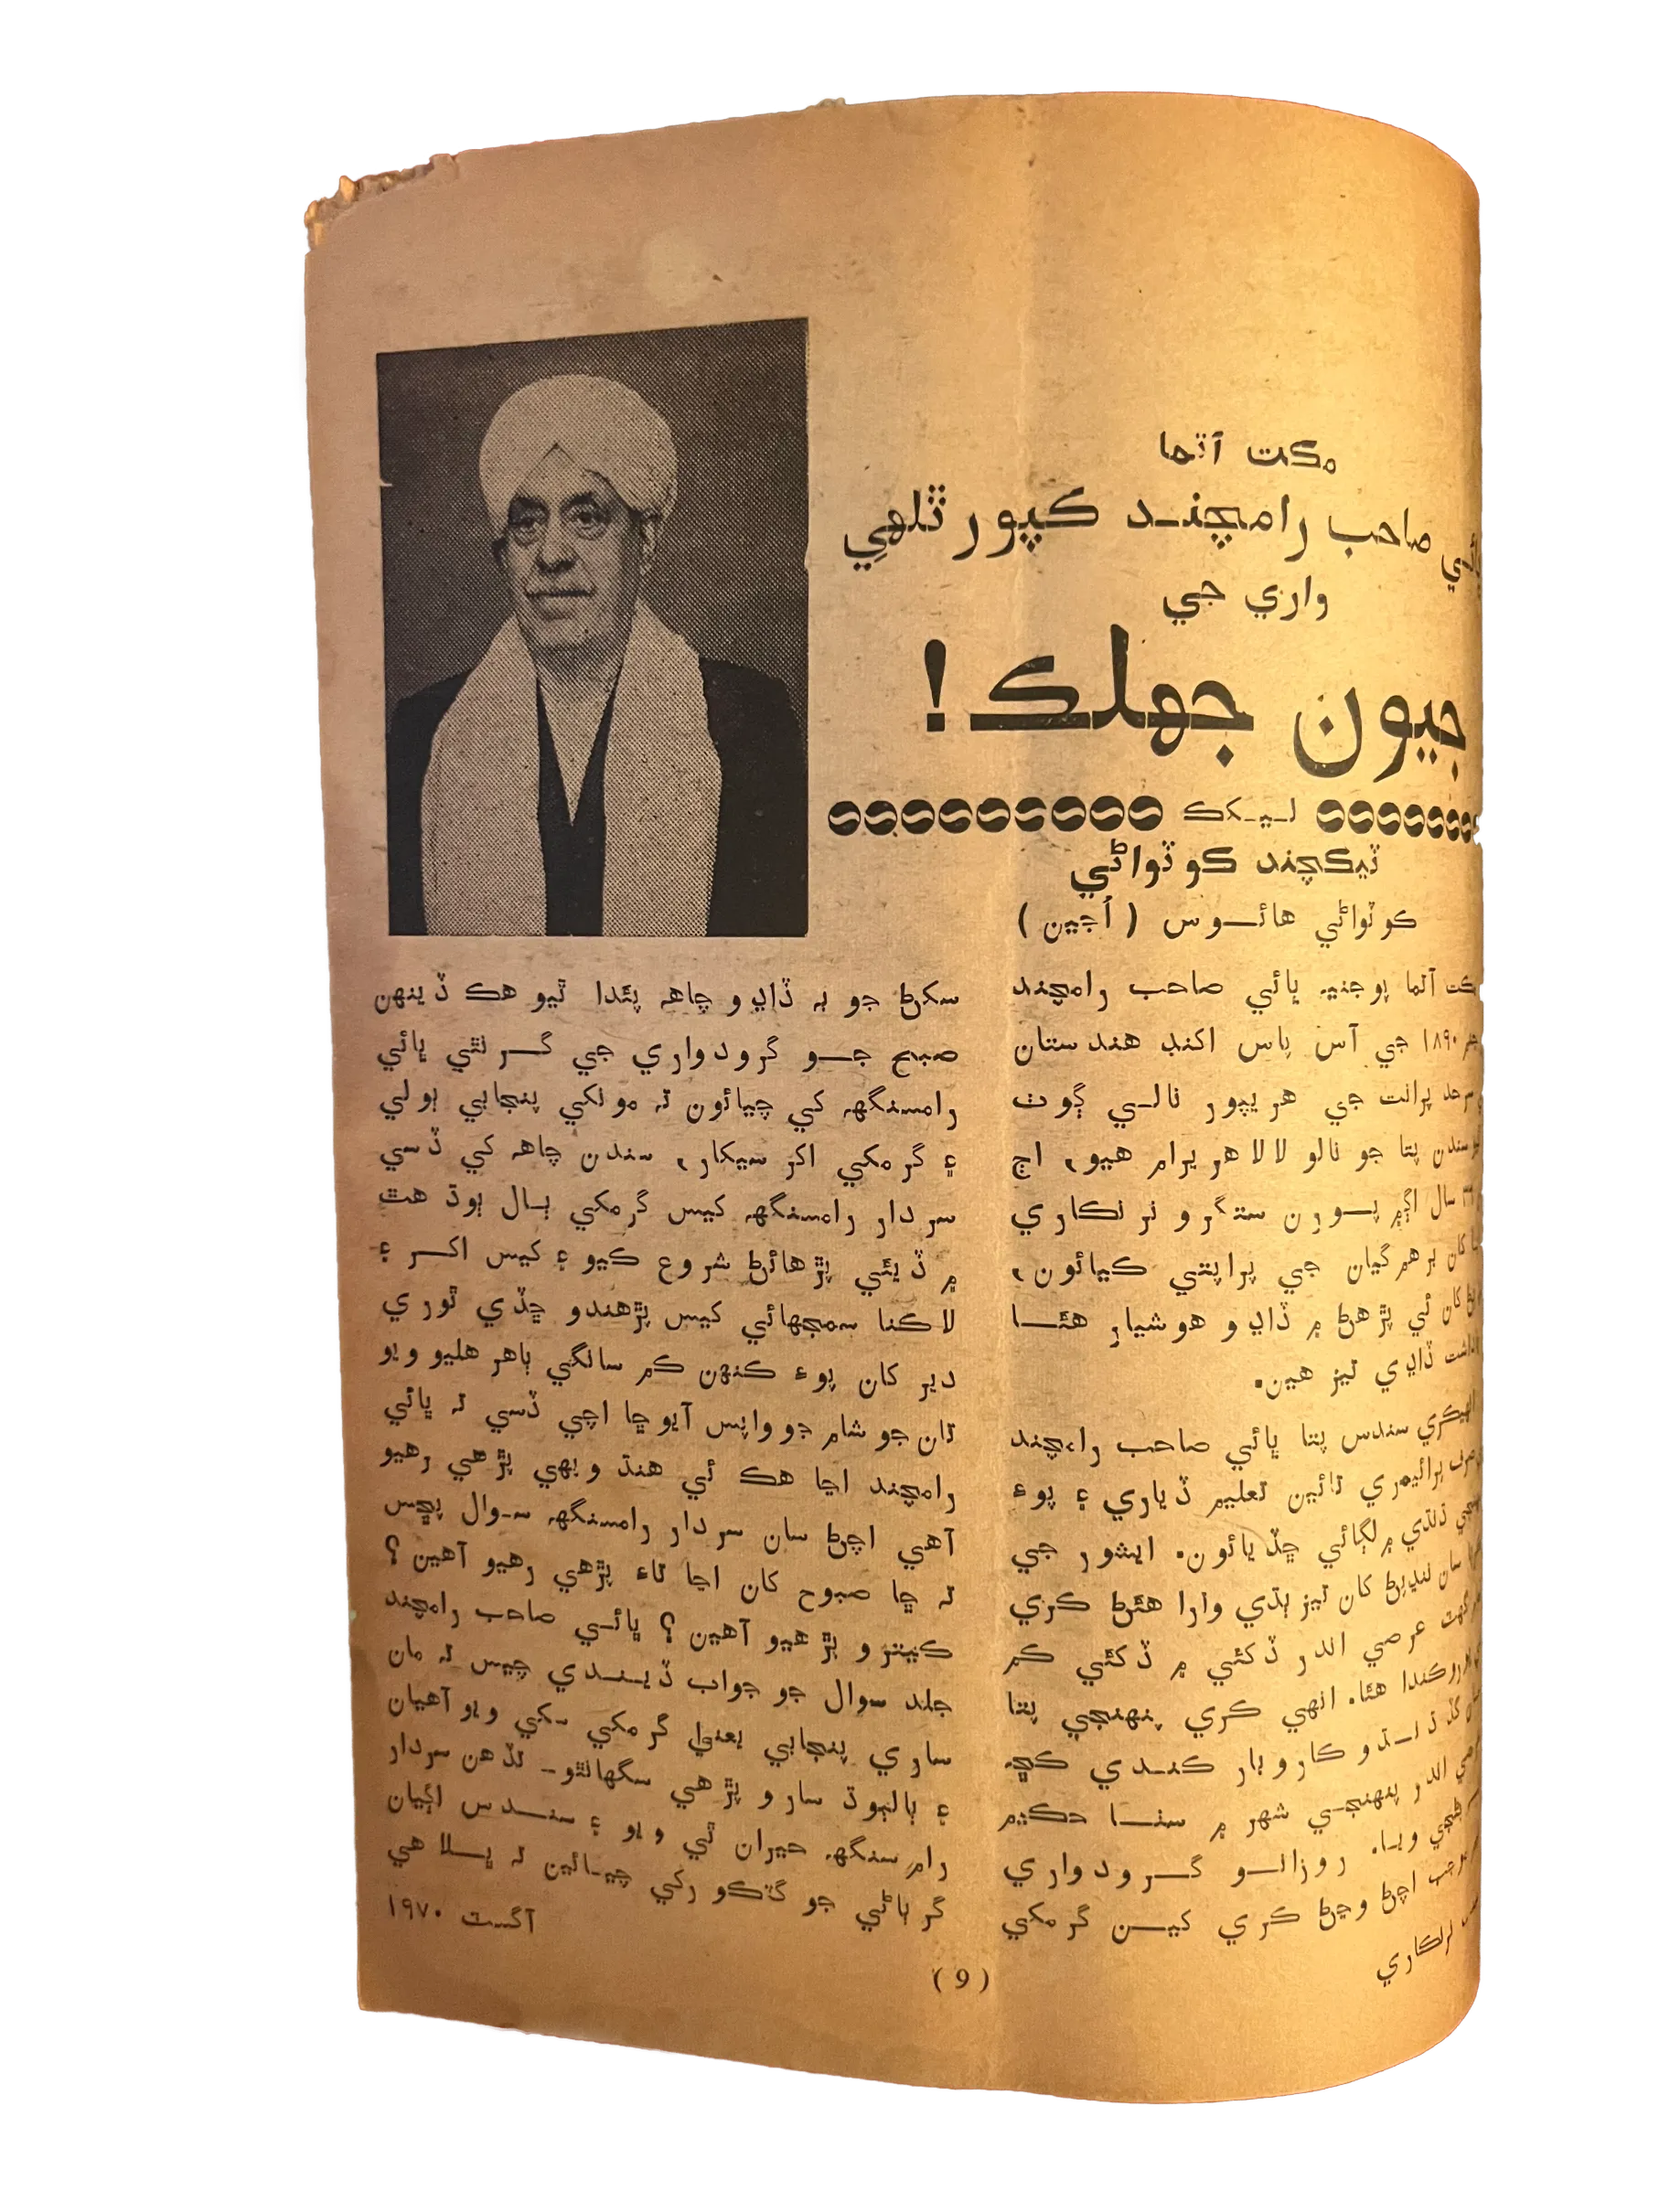 مڪت آتما
صاحب رامچند ڪپور ٿلهي
واري جي
جيون جهلڪ!
ليکڪ
ٽيڪچند ڪوٽواڻي
ڪوٽواڻي هائوس (اُجين)
آتما پوڄنيہ ڀائي صاحب رامچند
۱۸۹۰ جي آس پاس اکنڊ هندستان
سرحد پرانت جي هريپور نالي ڳوٺ
سندن پتا جو نالو لالا هريرام هيو، اڄ
سال اڳ ۾ پورن ستگرو نرنڪاري
کان برهم گيان جي پراپتي ڪيائون،
کان ئي پڙهڻ ۾ ڏاڍو هوشيار هئا
ڏاڍي تيز هين.
سندس پتا ڀائي صاحب رامچند
پرائيمري تائين تعليم ڏياري ۽ پوءِ
ڌنڌي ۾ لڳائي ڇڏيائون. ايشور جي
سان ننڍپڻ کان تيز ٻڌي وارا هئڻ ڪري
عرصي اندر ڏکئي ۾ ڏکئي ڪم
هئا. انهي ڪري پنهنجي پتا
گڏ ڌنڌو ڪاروبار ڪندي ڪڇ
اندر پنهنجي شهر ۾ سٺا حڪيم
ويا. روزانو گرودواري
اچڻ وڃڻ ڪري کين گرمکي
نرنڪاري
سکڻ جو بہ ڏاڍو چاهہ پئدا ٿيو هڪ ڏينهن
صبح جو گرودواري جي گرنٿي ڀائي
رامسنگهہ کي چيائون تہ مونکي پنجابي ٻولي
۽ گرمکي اکر سيکار، سندن چاهہ کي ڏسي
سردار رامسنگهہ کيس گرمکي ٻال ٻوڌ هٿ
۾ ڏيئي پڙهائڻ شروع ڪيو ۽ کيس اکر ۽
لاڪنا سمجهائي کيس پڙهندو ڇڏي ٿوري
دير کان پوءِ ڪنهن ڪم سانگي ٻاهر هليو ويو
تان جو شام جو واپس آيو ڇا اچي ڏسي تہ ڀائي
رامچند اڃا هڪ ئي هنڌ ويهي پڙهي رهيو
آهي اچڻ سان سردار رامسنگهہ سوال پڇيس
تہ ڇا صبوح کان اڃا تاءِ پڙهي رهيو آهين؟
ڪيترو پڙهيو آهين؟ ڀائي صاحب رامچند
جلد سوال جو جواب ڏيندي چيس تہ مان
ساري پنجابي يعني گرمکي سکي ويو آهيان
۽ ٻالٻوڌ سارو پڙهي سگهانٿو۔ تڏهن سردار
رام سنگهہ حيران ٿي ويو ۽ سندس اڳيان
گرٻاڻي جو گٽڪو رکي چيائين تہ ڀلا هي
آگسٽ ۱۹۷۰
(9)